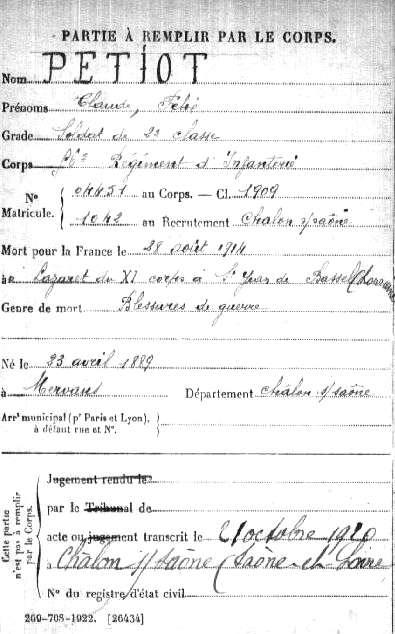 PARTIE À REMPLIR PAR LE CORPS.
Nom PETIOT
Prénoms Claude, Félix
Grade Soldat de 2e classe
Corps Régiment d'Infanterie
N° Matricule. 04451 au Corps. — Cl. 1909
1042 au Recrutement Chalon s/saône
Mort pour la France le 28 août 1914
à Lazaret du XI corps à St Jean de Bassel (Lorraine
Genre de mort Blessures de guerre
Né le 23 avril 1889
à Mervans Département Chalon s/saône
Arrt municipal (pr Paris et Lyon), à défaut rue et N°.
Cette partie n'est pas à remplir par le Corps.
Jugement rendu le
par le Tribunal de
acte ou jugement transcrit le 21 octobre 1920
à Chalon s/saône (Saône-et-Loire
N° du registre d'état civil
269-708-1922. [26434]